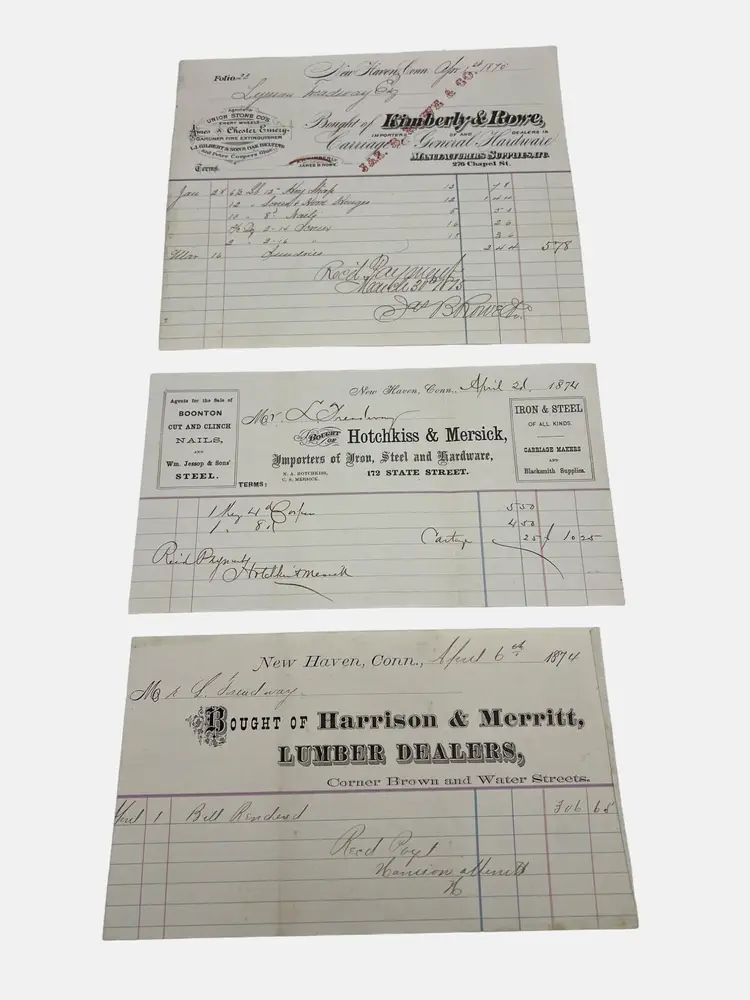 Folio 23
New Haven, Conn. Apr 187
Lyman Treadway Esq
Agents for
UNION STONE CO'S
EMERY WHEELS
Ames & Chester Emery
GARDNER FIRE EXTINGUISHER
L.J. GILBERT & SONS OAK BELTING
and Peter Cooper's Glue.
Bought of Kimberly & Rowe,
IMPORTERS OF AND DEALERS IN
Carriage & General Hardware
MANUFACTURERS SUPPLIES, ETC.
276 Chapel St.
Terms.
JAMES B. ROWE
JAS. B. ROWE & CO.
Jan 28 63 12 78
12 " Screw Hook Hinges 12 1 44
10 " 8d Nails 5 50
2-14 Screws
2 2-16 "
Mar 16 Sundries 2 44 5 78
Rec'd Payment
March 30th 1875
Jas B Rowe & Co.
New Haven, Conn., April 2d, 1874
Mr. L Treadway
Agents for the Sale of
BOONTON
CUT AND CLINCH
NAILS,
AND
Wm. Jessop & Sons'
STEEL.
BOUGHT OF Hotchkiss & Mersick,
Importers of Iron, Steel and Hardware,
N. A. HOTCHKISS,
C. S. MERSICK.
172 STATE STREET.
TERMS:
IRON & STEEL
OF ALL KINDS.
CARRIAGE MAKERS
AND
Blacksmith Supplies.
1 Keg 4d 5 50
1 " 8d 4 50
Cartage 25 10 25
Recd Paymt
Hotchkiss & Mersick
New Haven, Conn., April 6th 1874
Mr L. Treadway
BOUGHT OF Harrison & Merritt,
LUMBER DEALERS,
Corner Brown and Water Streets.
April 1 Bill Rendered 306 65
Recd Payt
Harrison & Merritt